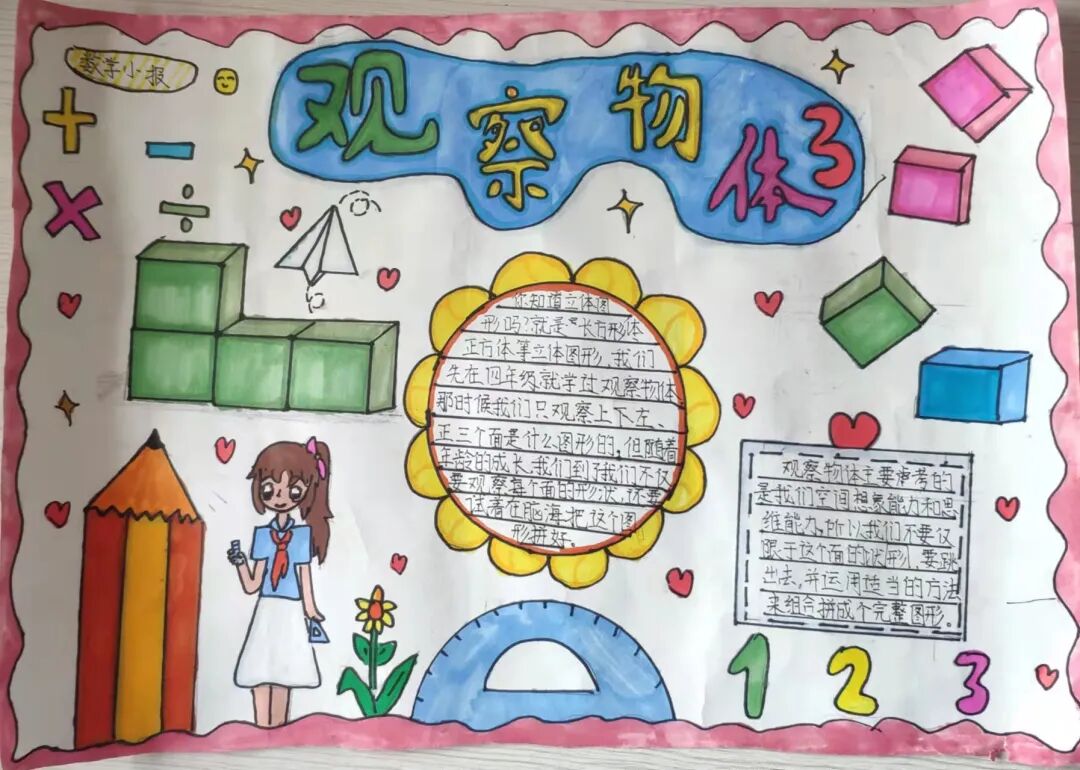 数学小报
观察物体3
你知道立体图
形吗?就是"长方形体
正方体等立体图形,我们
先在四年级就学过观察物体
那时候我们只观察上下左、
正三个面是什么图形的,但随着
年龄的成长,我们到了我们不仅
要观察每个面的形状,还要
试着在脑海把这个图
形拼好。
观察物体主要考的
是我们空间想象能力和思
维能力,所以我们不要仅
限于这个面的状形,要跳
出去,并运用适当的方法
来组合拼成个完整图形。
1 2 3